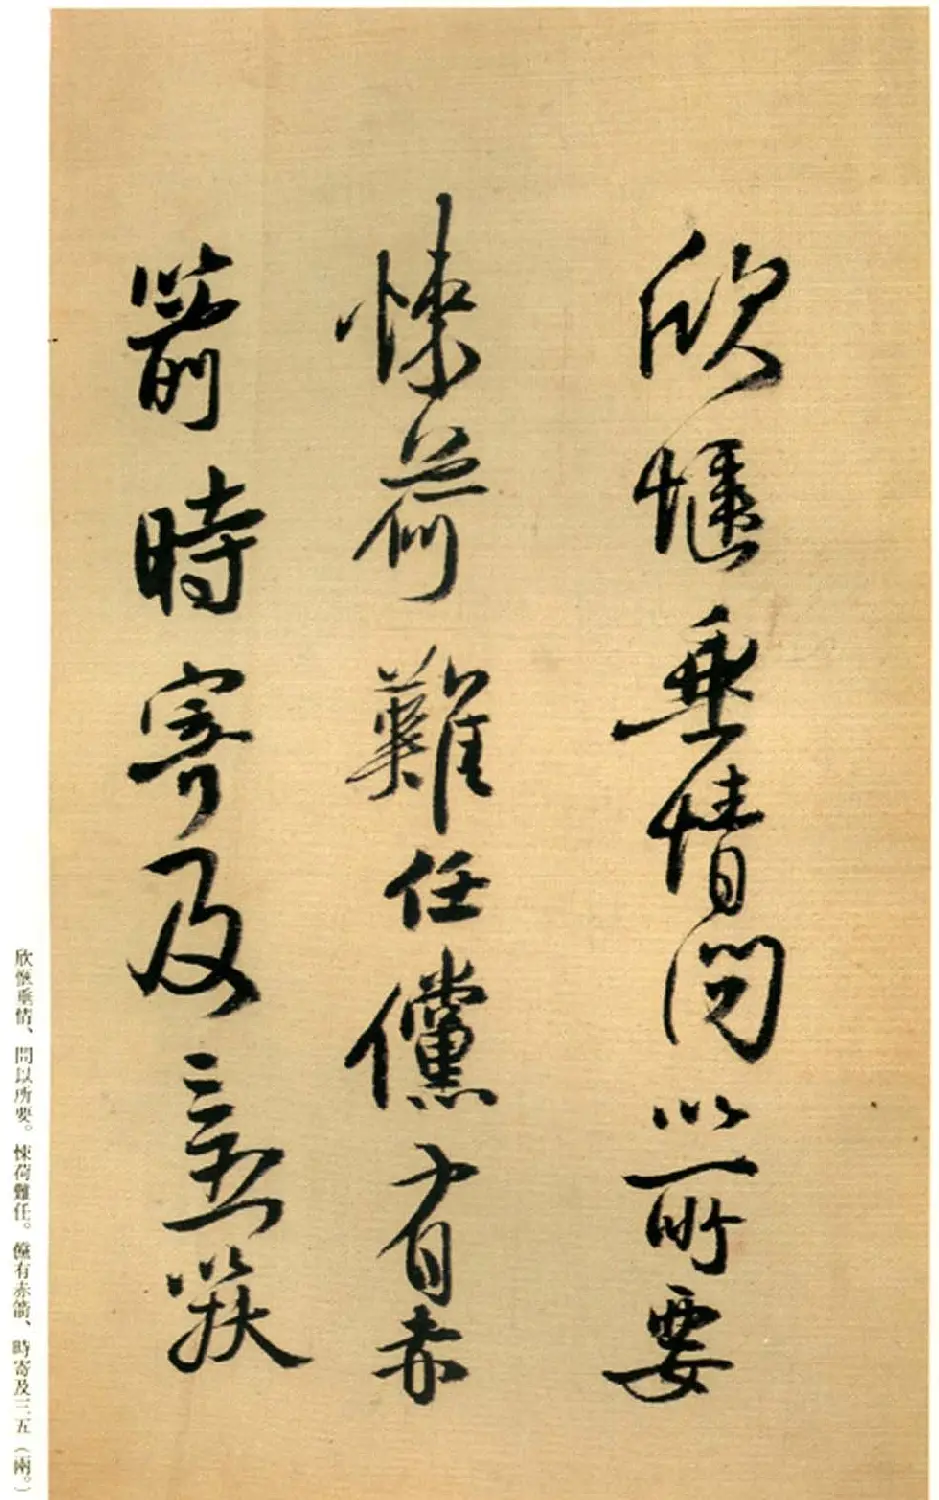 欣惬垂情問以所要
悚荷難任儻有赤
箭時寄及三五
欣惬垂情、問以所要。悚荷難任。儻有赤箭、時寄及三五（兩。）